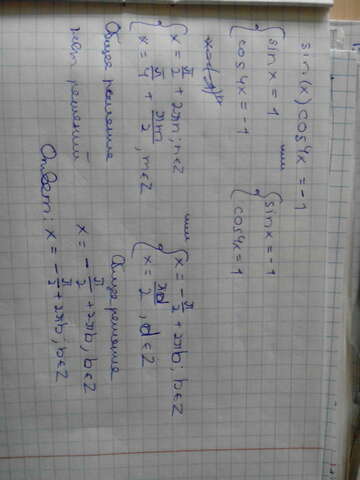 sin(x) cos4x = -1
{ sin x = 1
{ cos4x = -1
или
{ sin x = -1
{ cos4x = 1
{ x = π/2 + 2πn; n∈Z
{ x = π/4 + πm/2, m∈Z
или
{ x = -π/2 + 2πb; b∈Z
{ x = πd/2, d∈Z
Общее решение
нет решений
Общее решение
x = -π/2 + 2πb, b∈Z
Ответ: x = -π/2 + 2πb; b∈Z